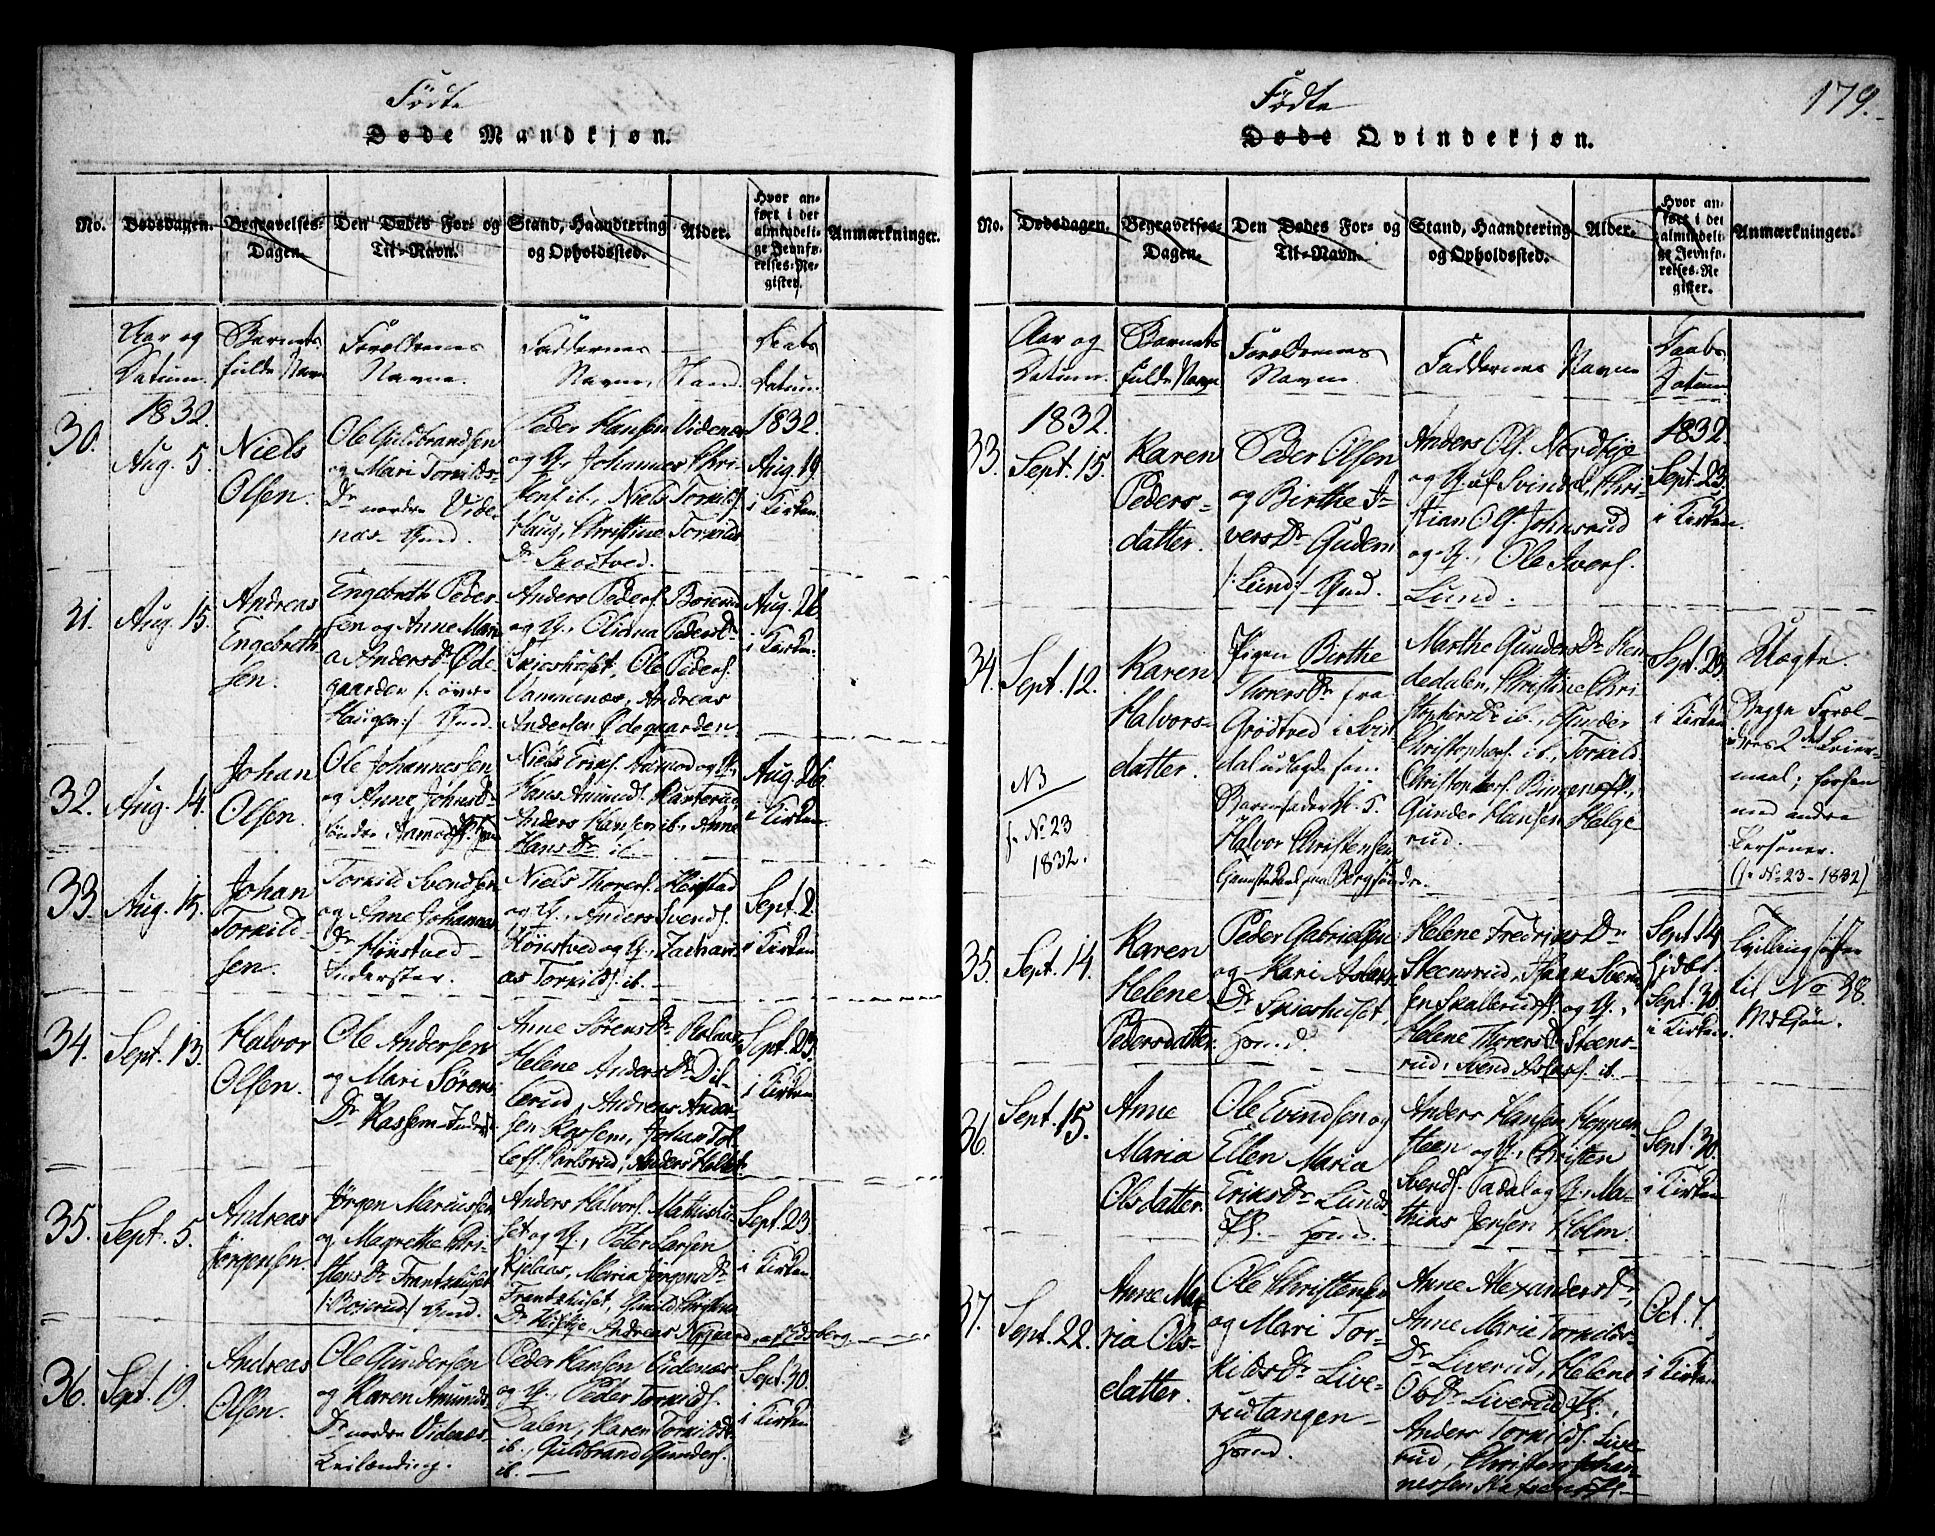 Fødte
Døde Mandkjøn.
No. Dødsdagen. Begravelses-Dagen. Den Dødes For- og Til-Navn. Stand, Haandtering og Opholdssted. Alder. Hvor anført i det almindelige Jevnførelses-Register. Anmærkninger.
Aar og Datum. Barnets fulde Navn Forældrenes Navne. Faddernes Navne, Stand. Daabs Datum.
30.
1832.
Aug. 5.
Niels
Olsen.
Ole Guldbrandsen
og Mari Torkilds-
Dr nordre Vide-
næs
Peder Hansen Videnæs
og Q., Johannes Chri-
stens. ib., Niels Torkilds.
Haug, Christine Torkilds
Dr Skodtved.
1832.
Aug. 19.
i Kirken.
31.
Aug. 15.
Andreas
Engebreth
sen.
Engebreth Peder-
sen og Anne Mari
a Andersdr Øde-
gaarden /: øvre
Haugen:/
Anders Peders. Boierud
og Q., Oliana Peders Dr
Skieshuset, Ole Peders.
Vammenæs, Andreas
Andersen Ødegaarden.
Aug. 26.
i Kirken.
32.
Aug. 14.
Johan
Olsen.
Ole Johannessen
og Anne Johns Dr
søndre Aamod
Niels Eriks. Aamod og Q.,
Hans Amunds.
Anders Hansen ib., Anne
Hans Dr ib.
Aug. 26.
i Kirken.
33.
Aug. 15.
Johan
Torkild-
sen.
Torkild Svendsen
og Anne Johannes
Dr Hønstved
Inderster.
Niels Thorers. Heistad
og Q., Anders Svends.
Hønstved og Q., Zachari-
as Torkilds. ib.
Sept. 2.
i Kirken.
34.
Sept. 13.
Halvor
Olsen.
Ole Andersen
og Mari Sørens
Dr Kassem
Anne Sørens Dr
Helene Anders Dr Dil-
lerud, Andreas Ander-
sen Kassem, Johan Tol-
lefs. Karlsrud, Anders
Sept. 23.
i Kirken.
35.
Sept. 5.
Andreas
Jørgensen.
Jørgen Marcussen
og Magrethe Chri-
stens Dr Frantzhuset
/:Boierud:/
Anders Halvors. Mathishu-
set og Q., Peter Larsen
Kjelaas, Maria Jørgens Dr
Frantzhuset, Gunild Christens
Dr Huseby, Andreas Nygaard, af Edsberg.
Sept. 23
i Kirken.
36.
Sept. 19.
Andreas
Olsen.
Ole Gundersen
og Karen Amunds
Dr nordre Videnæs-
Eie
Peder Hansen Videnæs
og Q., Peder Torkilds.
Dalen, Karen Torkilds Dr
ib., Guldbrand Gunders.
ib.
Sept. 30.
i Kirken
179.
Fødte
Døde Qvindekjøn.
No. Dødsdagen. Begravelses-Dagen. Den Dødes For- og Til-Navn. Stand, Haandtering og Opholdssted. Alder. Hvor anført i det almindelige Jevnførelses-Register. Anmærkninger.
Aar og Datum. Barnets fulde Navn Forældrenes Navne. Faddernes Navne Daabs Datum
33.
1832.
Sept. 15.
Karen
Peders-
datter.
Peder Olsen
og Birthe I-
vers Dr Gudem
/:Lund:/
Anders Ols. Nordbye
og Q. af Svindal, Chri-
stian Ols. Johnsrud
og Q., Ole Ivers.
Lund.
1832.
Sept. 23.
i Kirken.
34.
Sept. 12.
NB
f. No 23
1832.
Karen
Halvors-
datter.
Pigen Birthe
Thorers Dr fra
Grødtved i Svin
dal udlagde som
Barnefader U. K.
Halvor Christensen
Marthe Gunders Dr Ren-
dedalen, Christine Chri-
stophers Dr ib., Gunder
Christophers. ib., Torkild
Christophers.
Gunder Hansen Helge
rud.
Sept. 23.
i Kirken
Uægte.
Begge Foræl-
dres 2det Leier-
maal; forhen
med andre
Personer.
(f. No 23 - 1832)
35.
Sept. 14.
Karen
Helene
Pedersdatter.
Peder Gabrielsen
og Kari Aslaks
Dr Skieshuset,
Helene Fredriks Dr
Steensrud, Johan Svend-
sen Skallerud og Q.,
Helene Thorers Dr Steens-
rud, Svend Aslaks. ib.
Sept. 14
hjdøbt.
Sept. 30.
i Kirken.
Tvillingsøster
til No 38.
M. Kjøn.
36.
Sept. 15.
Anne
Maria
Olsdatter.
Ole Evindsen og
Ellen Maria
Eriks Dr Lunds-
Anders Hansen Heppen-
steen og Q., Christen
Svends. Vadal og Q., Ma-
thias Jensen Holm.
Sept. 30.
i Kirken
37.
Sept. 22.
Anne Ma-
ria Ols-
datter.
Ole Christensen
og Mari Tor-
kilds Dr Live-
rudtangen
Anne Alexanders Dr,
Anne Marie Torkilds-
Dr Liverud, Helene
Ols Dr Liverud
Anders Torkilds. Live-
rud, Christen Johan-
nessen
Oct. 7.
i Kirken